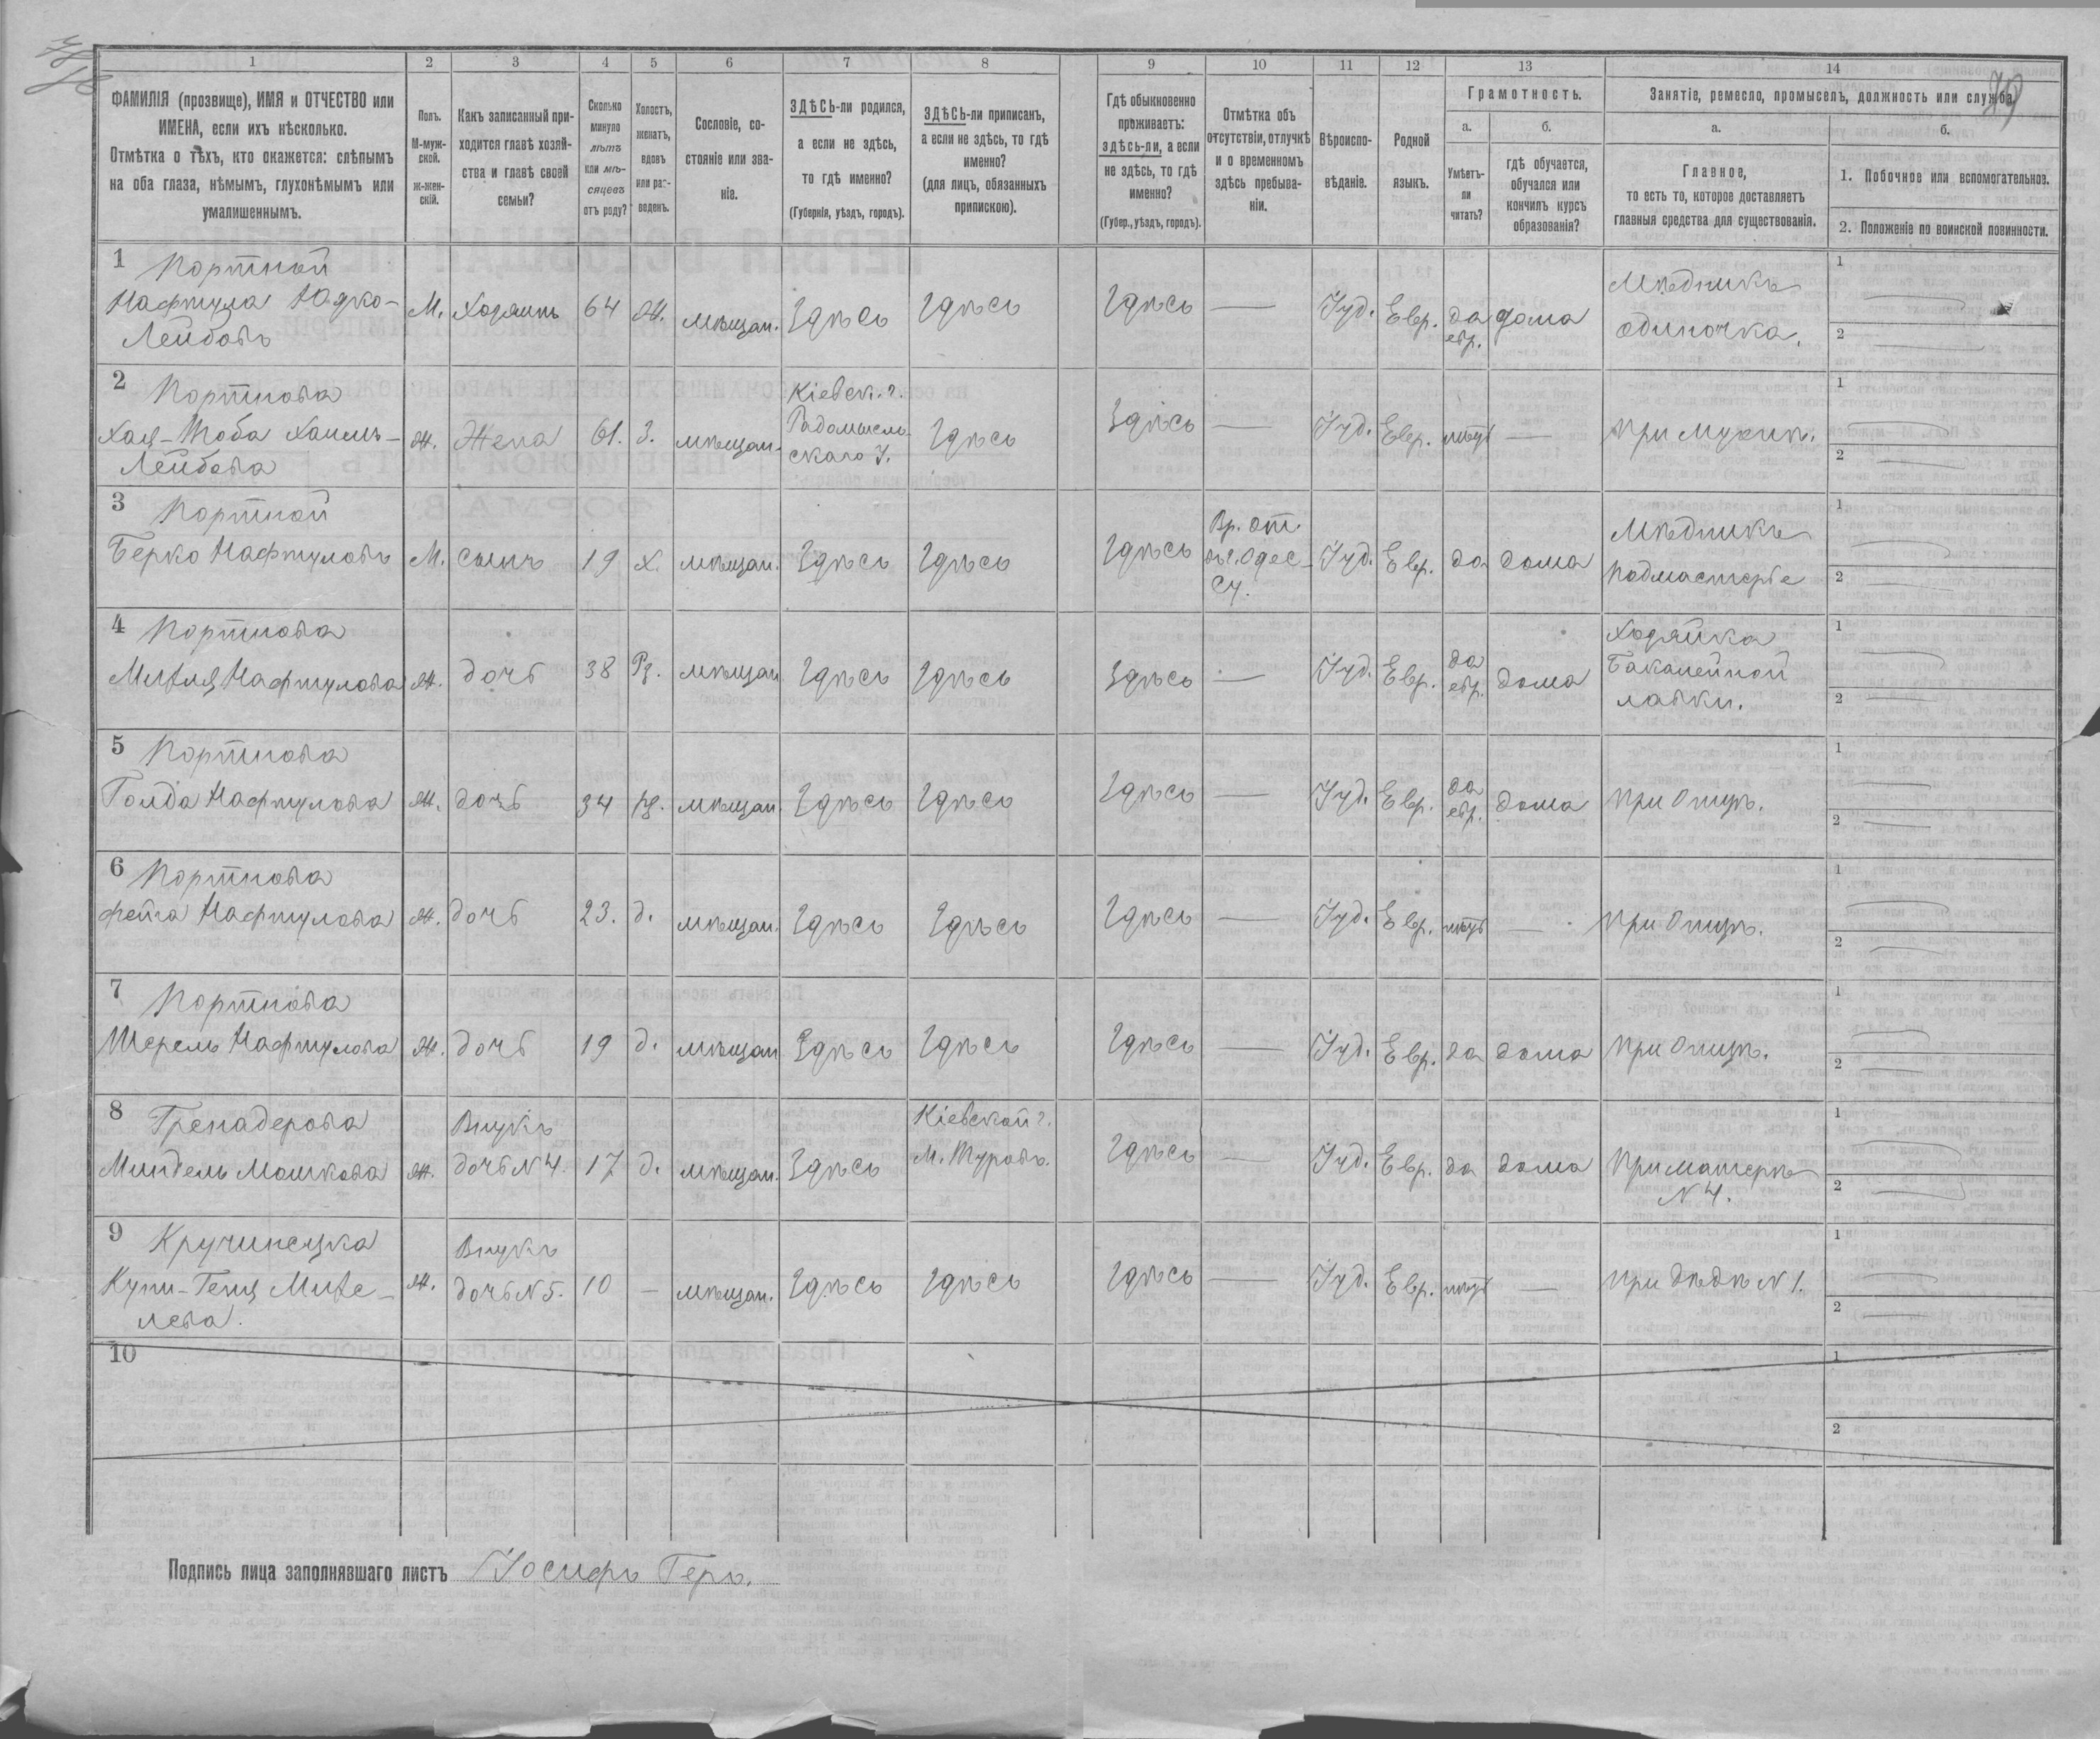 1 2 3 4 5 6 7 8 9 10 11 12 13 14
ФАМИЛІЯ (прозвище), ИМЯ и ОТЧЕСТВО или
ИМЕНА, если ихъ нѣсколько.
Отмѣтка о тѣхъ, кто окажется: слѣпымъ
на оба глаза, нѣмымъ, глухонѣмымъ или
умалишеннымъ.
Полъ.
М-муж-
ской.
Ж-жен-
скій.
Какъ записанный при-
ходится главѣ хозяй-
ства и главѣ своей
семьи?
Сколько
минуло
лѣтъ
или мѣ-
сяцевъ
отъ роду?
Холостъ,
женатъ,
вдовъ
или раз-
веденъ.
Сословіе, со-
стояніе или зва-
ніе.
ЗДѢСЬ-ли родился,
а если не здѣсь,
то гдѣ именно?
(Губернія, уѣздъ, городъ).
ЗДѢСЬ-ли приписанъ,
а если не здѣсь, то гдѣ
именно?
(для лицъ, обязанныхъ
припискою).
Гдѣ обыкновенно
проживаетъ:
здѣсь-ли, а если
не здѣсь, то гдѣ
именно?
(Губер., уѣздъ, городъ).
Отмѣтка объ
отсутствіи, отлучкѣ
и о временномъ
здѣсь пребыва-
ніи.
Вѣроиспо-
вѣданіе.
Родной
языкъ.
Грамотность.
а.
Умѣетъ-
ли
читать?
б.
гдѣ обучается,
обучался или
кончилъ курсъ
образованія?
Занятіе, ремесло, промыселъ, должность или служба.
а.
Главное,
то есть то, которое доставляетъ
главныя средства для существованія.
б.
1. Побочное или вспомогательное.
2. Положеніе по воинской повинности.
1 Портной
Нафтула Юдко-
Лейбовъ
М. Хозяинъ 64 Ж. мѣщан. Здѣсь Здѣсь Здѣсь — Іуд. Евр. да
евр. дома Мѣдникъ
одиночка.
1 —
2 —
2 Портнова
Хая-Тоба Ханель-
Лейбова
Ж. Жена 61. З. мѣщан. Кіевск. г.
Радомысль-
скаго у. Здѣсь Здѣсь — Іуд. Евр. нѣтъ — при мужѣ.
1 —
2 —
3 Портной
Берко Нафтуловъ
М. сынъ 19 Х. мѣщан. Здѣсь Здѣсь Здѣсь Вр. от.
въ г. Одес-
су. Іуд. Евр. да дома Мѣдникъ
подмастерье
1 —
2 —
4 Портнова
Нафтулова
Ж. дочь 38 Рз. мѣщан Здѣсь Здѣсь Здѣсь — Іуд. Евр. да
евр. дома Хозяйка
Бакалейной
лавки.
1 —
2 —
5 Портнова
Голда Нафтулова
Ж. дочь 34 рз. мѣщан. Здѣсь Здѣсь Здѣсь — Іуд. Евр. да
евр. дома при Отцѣ.
1 —
2 —
6 Портнова
Фейга Нафтулова
Ж. дочь 23. д. мѣщан. Здѣсь Здѣсь Здѣсь — Іуд. Евр. нѣтъ — при Отцѣ.
1 —
2 —
7 Портнова
Шерель Нафтулова
Ж. дочь 19 д. мѣщан Здѣсь Здѣсь Здѣсь — Іуд. Евр. да дома при Отцѣ.
1 —
2 —
8 Гренадерова
Миндель Мошкова
Ж. Внука
дочь N 4. 17 д. мѣщан. Здѣсь Кіевской г.
М. Здѣсь — Іуд. Евр. да дома при матерѣ
N 4.
1 —
2 —
9 Кручинецка
Ж. Внука
дочь N 5. 10 — мѣщан. Здѣсь Здѣсь Здѣсь — Іуд. Евр. нѣтъ — при дѣдѣ N 1.
1 —
2 —
10
1
2
Подпись лица заполнявшаго листъ Іосифъ Геръ.